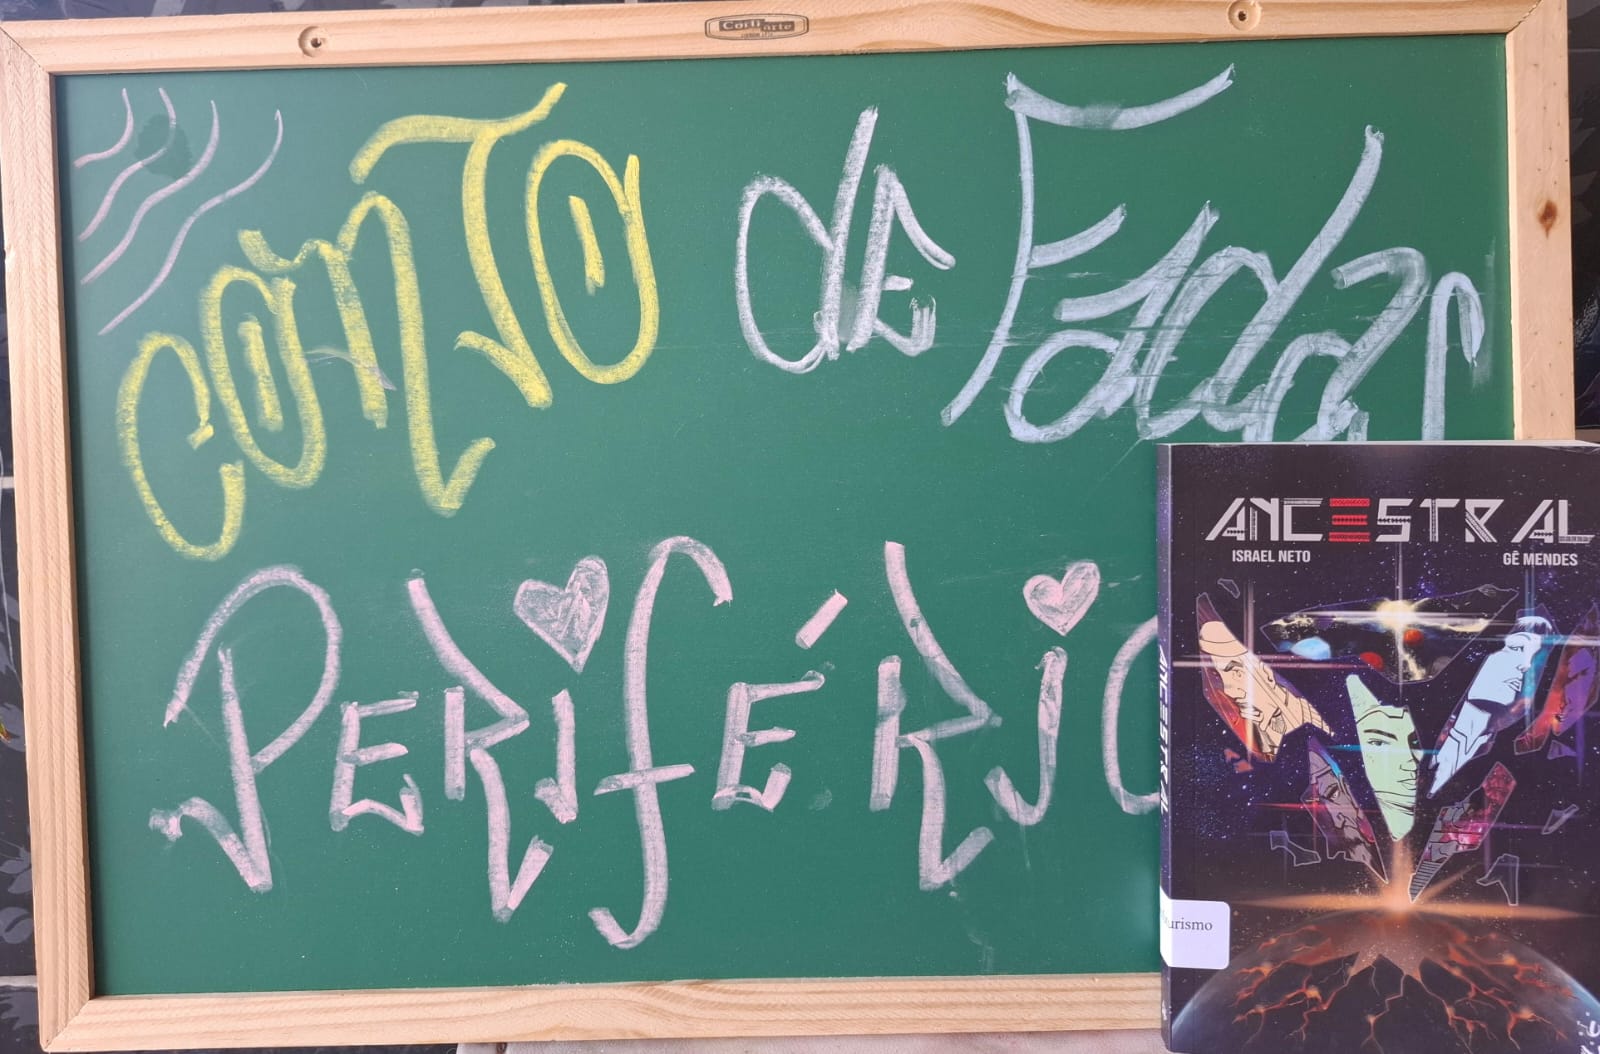 CortiArte
CONTO dE Fadas
PERifÉRiC
ANCESTRAL
ISRAEL NETO GÊ MENDES
ANCESTRAL
urismo